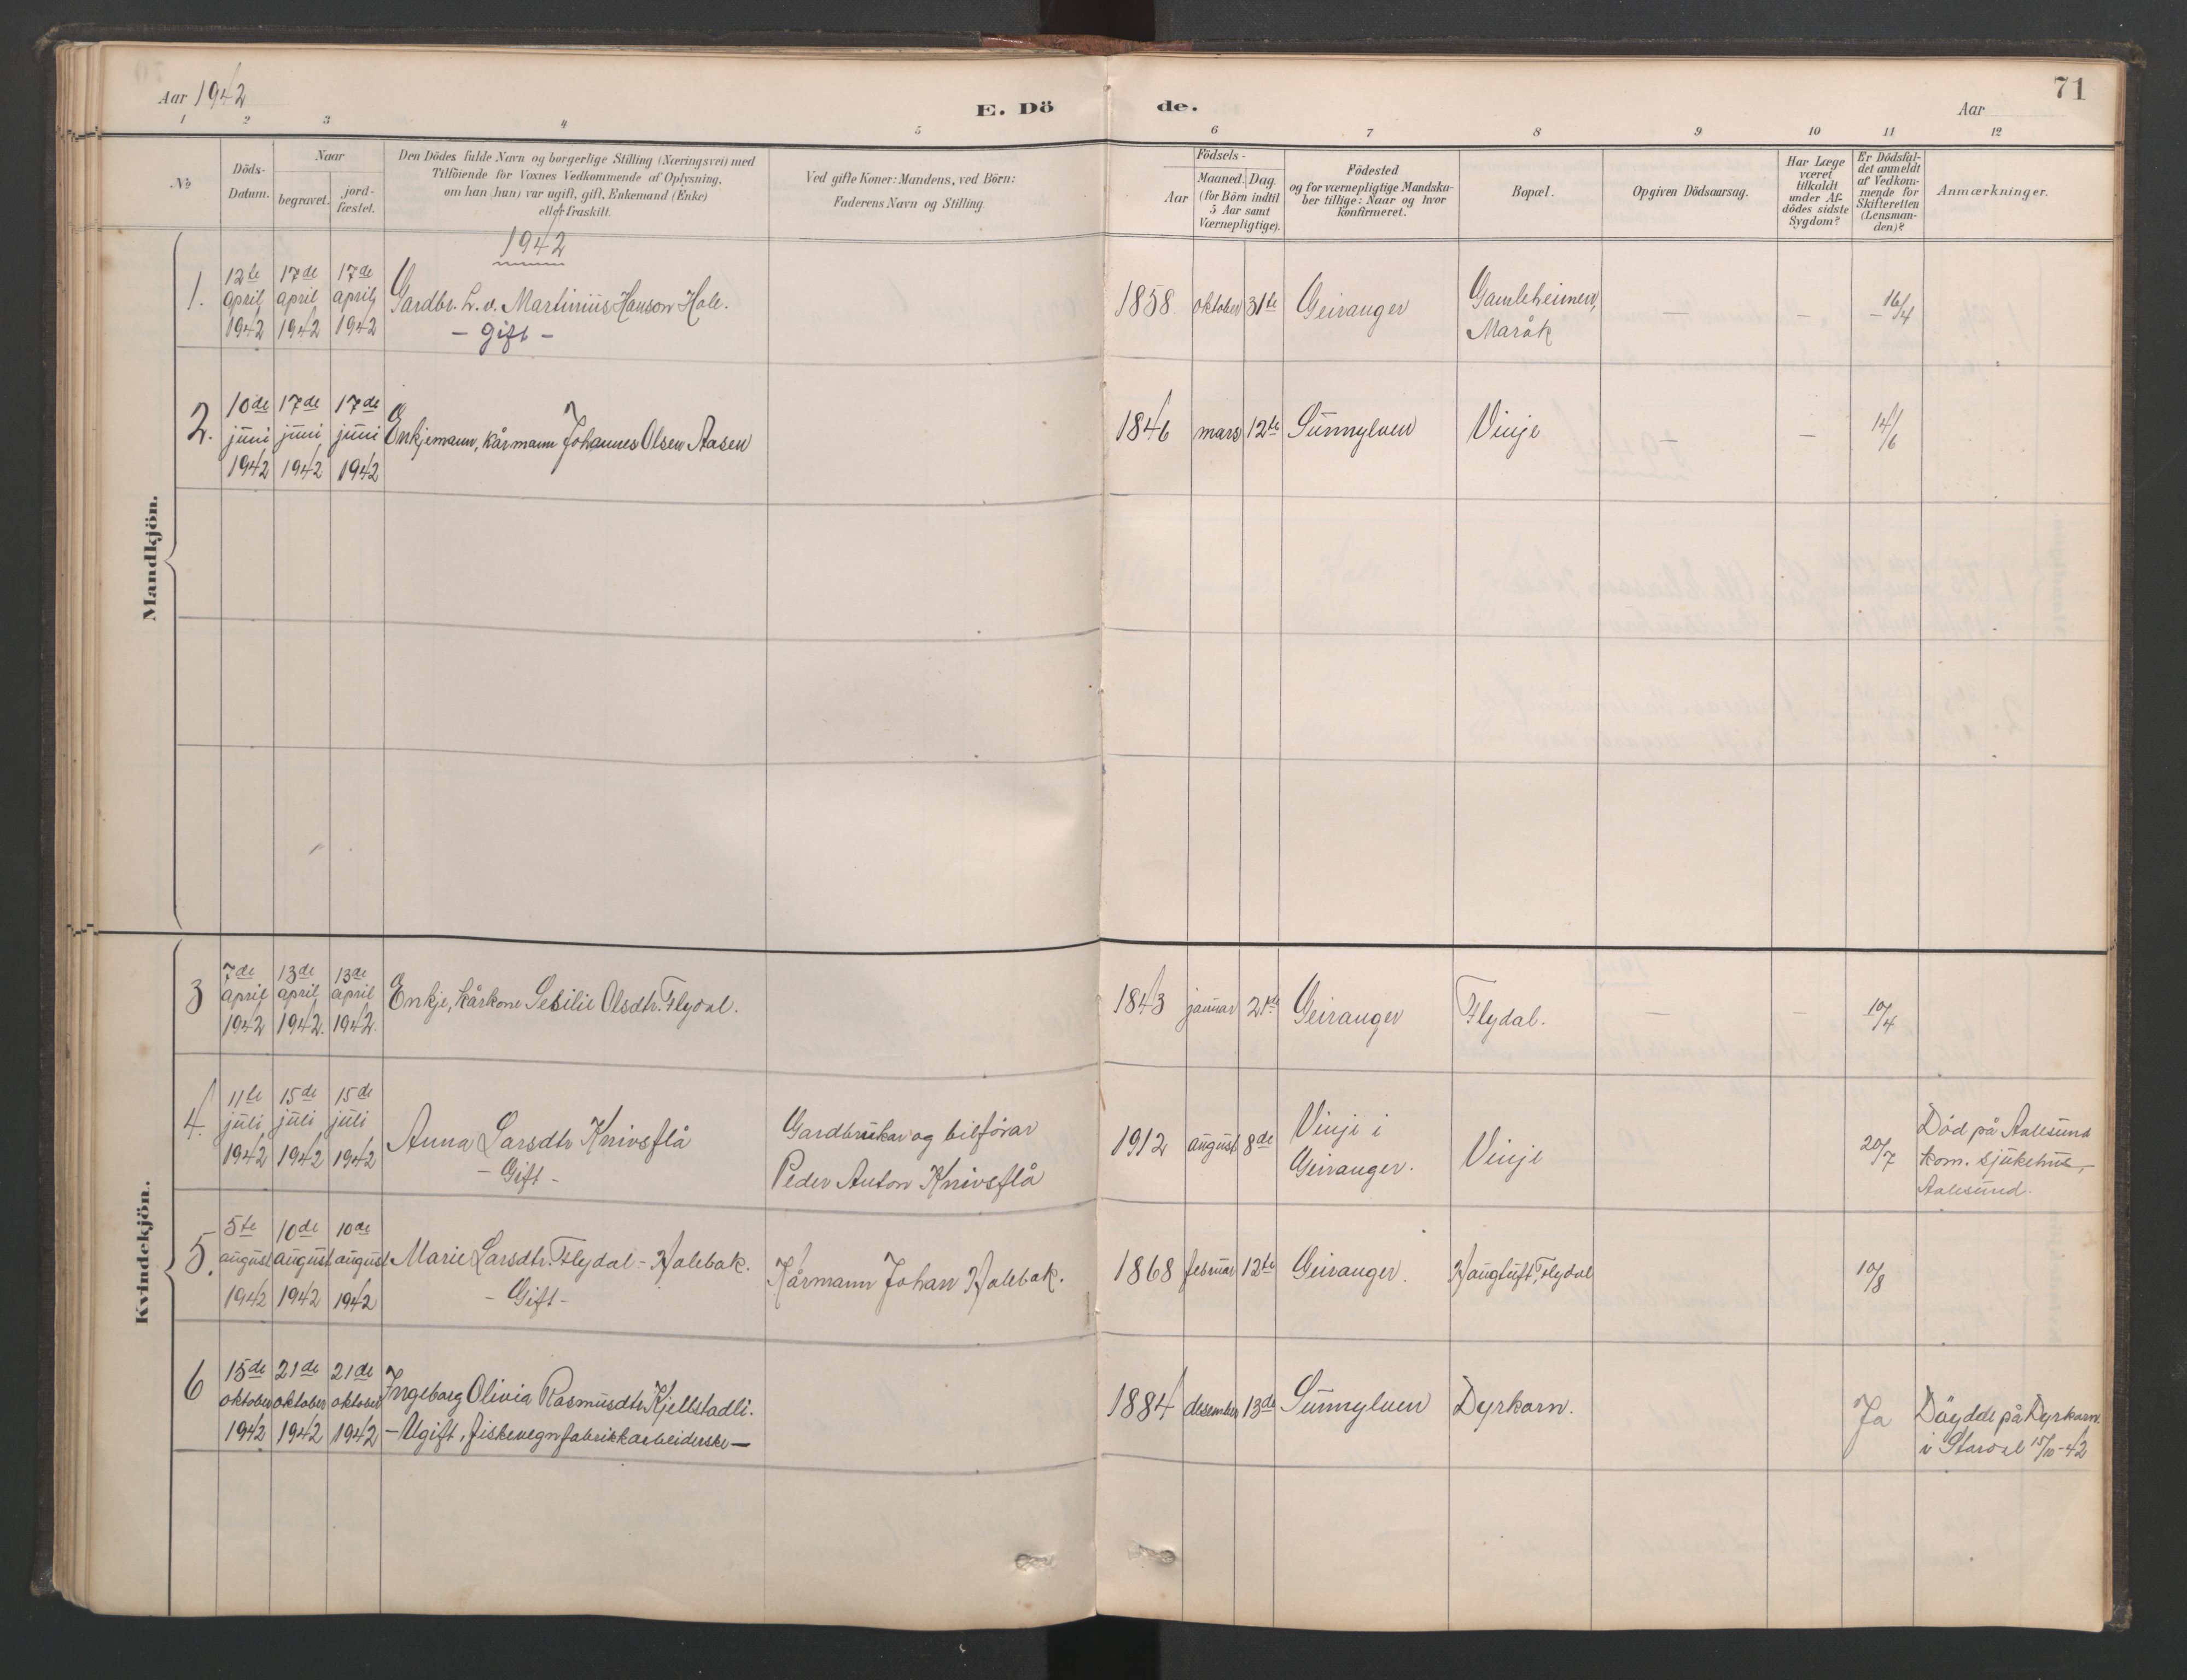 Aar 1942
E. Dö de.
Aar
71
1 2 3 4 5 6 7 8 9 10 11 12
No
Döds-
Datum.
Naar
begravet.
jord-
fæstet.
Den Dödes fulde Navn og borgerlige Stilling (Næringsvei) med
Tilföiende for Voxnes Vedkommende af Oplysning,
om han (hun) var ugift, gift, Enkemand (Enke)
eller fraskilt.
Ved gifte Koner: Mandens, ved Börn:
Faderens Navn og Stilling.
Födsels-
Aar
Maaned. Dag.
(for Börn indtil
5 Aar samt
Værnepligtige).
Födested
og for værnepligtige Mandska-
ber tillige: Naar og hvor
konfirmeret.
Bopæl.
Opgiven Dödsaarsag.
Har Læge
været
tilkaldt
under Af-
dödes sidste
Sygdom?
Er Dödsfal-
det anmeldt
af Vedkom-
mende for
Skifteretten
(Lensman-
den)?
Anmærkninger.
Mandkjön.
1942
1. 12te april 1942 17de april 1942 17de april 1942 Gardbr. L. v. Martinius Hanson Hole. 1858 oktober 31te Geiranger Gamleheimen, — — 16/4
- gift - Maråk
2. 10de juni 1942 17de juni 1942 17de juni 1942 Enkjemann, kårmann Johannes Olsen Aasen 1846 mars 12te Sunnylven Vinje — — 14/6
Kvindekjön.
3 7de april 1942 13de april 1942. 13de april 1942. Enkje, kårkone Sesilie Olsdtr. Flydal. 1843 januar Geiranger Flydal. — — 10/4
4. 11te juli 1942 15de juli 1942 15de juli 1942 Anna Larsdtr Knivsflå Gardbrukar og bilførar 1912 august 8de Vinje i Vinje 20/7 Død på Aalesund
- Gift - Peder Anton Knivsflå Geiranger. kom. sjukehus,
Aalesund.
5. 5te august 1942 10de august 1942 10de august 1942 Marie Larsdtr. Flydal - Holebak. Kårmann Johan Holebak. 1868 februar 12te Geiranger. Haugtuft, Flydal 10/8
- Gift -
6 15de oktober 1942 21de oktober 1942 21de oktober 1942 Ingeborg Olivia Rasmusdtr. Kjellstadli. 1884 desember 13de Sunnylven Dyrkorn. Ja Døydde på Dyrkorn
- Ugift, fiskevegnfabrikkarbeiderske — i Stordal 15/10-42